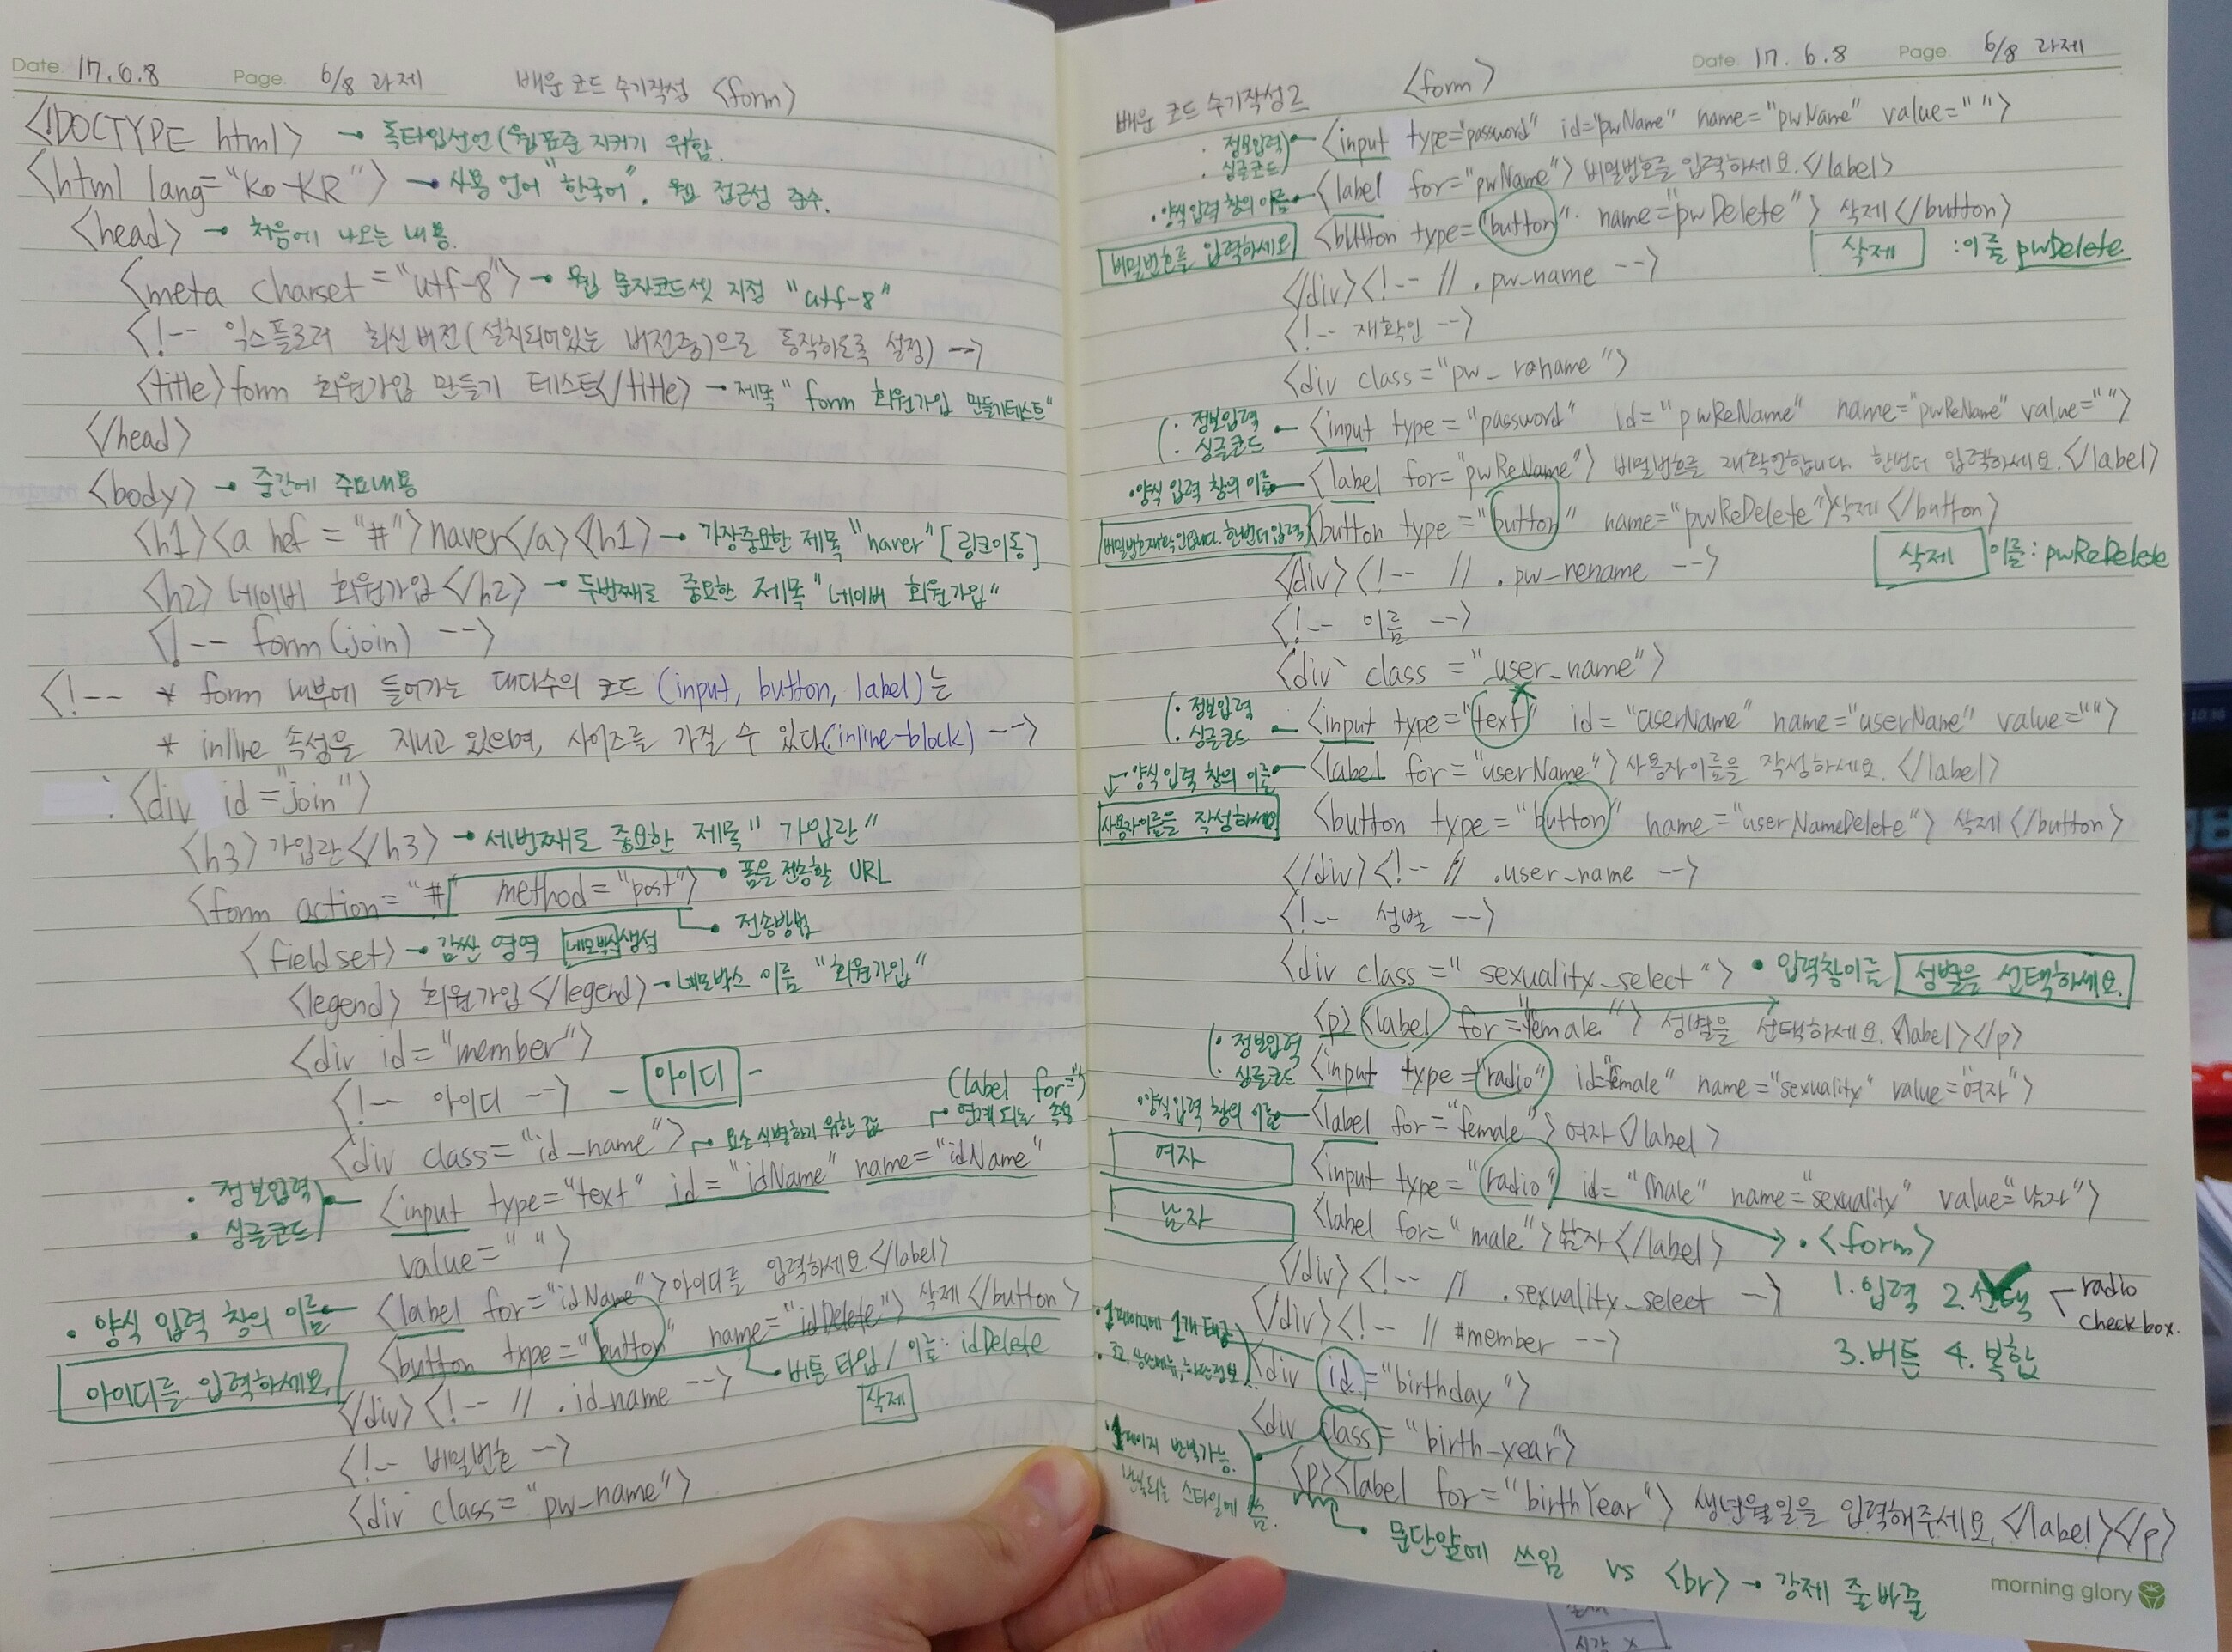 Date. 17.6.8 Page. 6/8 과제 배운 코드 수기작성 <form>
<!DOCTYPE html> → 독타입선언(웹표준 지키기 위함.
<html lang="Ko-KR"> → 사용 언어 "한국어". 웹 접근성 준수.
<head> → 처음에 나오는 내용.
<meta charset="utf-8"> → 웹 문자코드셋 지정 "utf-8"
<!-- 익스플로러 최신버전(설치되어있는 버전중)으로 동작하도록 설정) -->
<title>form 회원가입 만들기 테스트</title> → 제목 "form 회원가입 만들기테스트"
</head>
<body> → 중간에 주요내용
<h1><a hef = "#">naver</a><h1> → 가장중요한 제목 "naver" [링크이동]
<h2>네이버 회원가입</h2> → 두번째로 중요한 제목 "네이버 회원가입"
<!-- form(join) -->
<!-- * form 내부에 들어가는 대다수의 코드 (input, button, label)는
* inline 속성을 지니고 있으며, 사이즈를 가질 수 있다(inline-block) -->
<div id="join">
<h3>가입란</h3> → 세번째로 중요한 제목 "가입란"
<form action="#" method="post"> • 폼을 전송할 URL
• 전송방법
<fieldset> → 감싼 영역 네모박스생성
<legend>회원가입</legend> → 네모박스 이름 "회원가입"
<div id="member">
<!-- 아이디 --> - 아이디 -
(label for="")
<div class="id_name"> 요소 식별하기 위한 값 연계 되는 속성
• 정보입력
• 싱글코드
<input type="text" id="idName" name="idName"
value=" ">
• 양식 입력 창의 이름 <label for="idName">아이디를 입력하세요.</label>
아이디를 입력하세요. <button type="button" name="idDelete">삭제</button>
버튼 타입 / 이름: idDelete
삭제
</div><!-- // .id_name -->
<!-- 비밀번호 -->
<div class="pw_name">
Date. 17.6.8 Page. 6/8 과제
배운 코드 수기작성2 <form>
• 정보입력
• 싱글코드
<input type="password" id="pwName" name="pwName" value="">
• 양식입력 창의 이름 <label for="pwName">비밀번호를 입력하세요.</label>
비밀번호를 입력하세요 <button type="button" name="pwDelete">삭제</button>
삭제 : 이름 pwDelete
</div><!-- // .pw_name -->
<!-- 재확인 -->
<div class="pw_rename">
• 정보입력
• 싱글코드
<input type="password" id="pwReName" name="pwReName" value="">
• 양식 입력 창의 이름 <label for="pwReName">비밀번호를 재확인합니다. 한번더 입력하세요.</label>
비밀번호재확인합니다. 한번더입력 <button type="button" name="pwReDelete">삭제</button>
삭제 이름: pwReDelete
<div><!-- // .pw_rename -->
<!-- 이름 -->
<div class="user_name">
• 정보입력
• 싱글코드
<input type="text" id="userName" name="userName" value="">
양식 입력 창의 이름 <label for="userName">사용자이름을 작성하세요.</label>
사용자이름을 작성하세요 <button type="button" name="userNameDelete">삭제</button>
</div><!-- // .user_name -->
<!-- 성별 -->
<div class="sexuality_select"> • 입력창이름 성별을 선택하세요.
<p><label for="female">성별을 선택하세요.<label></p>
• 정보입력
• 싱글코드
<input type="radio" id="female" name="sexuality" value="여자">
• 양식입력 창의 이름 <label for="female">여자</label>
여자 <input type="radio" id="male" name="sexuality" value="남자">
남자 <label for="male">남자</label> • <form>
</div><!-- // .sexuality_select --> 1.입력 2.선택 radio
checkbox.
3.버튼 4.복합
</div><!-- // #member -->
• 1페이지에 1개 태그
<div id="birthday">
<div class="birth-year">
• 1페이지 반복가능.
반복되는 스타일에 씀.
<p><label for="birthYear">생년월일을 입력해주세요.</label></p>
문단앞에 쓰임 vs <br> → 강제 줄바꿈
morning glory